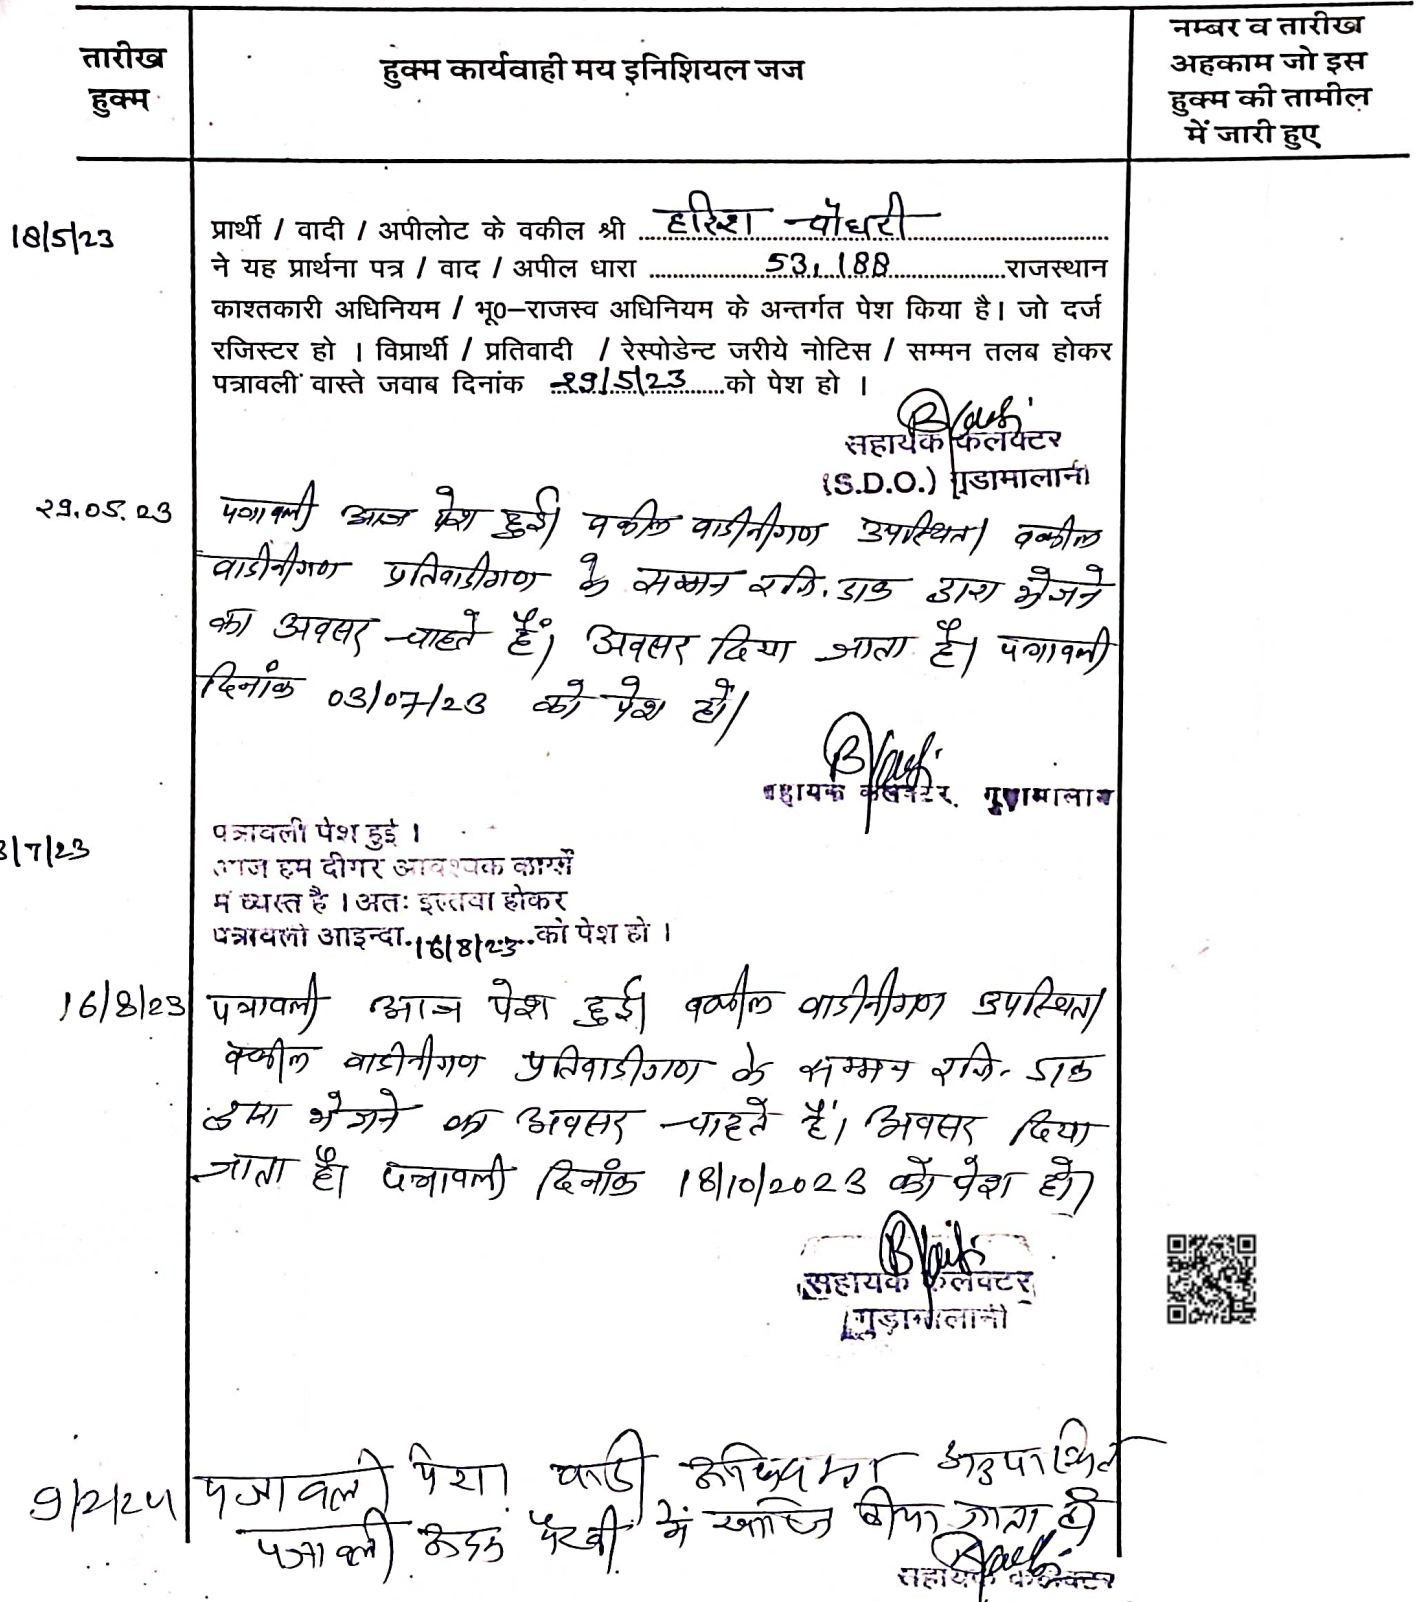 तारीख
हुक्म
हुक्म कार्यवाही मय इनिशियल जज
नम्बर व तारीख
अहकाम जो इस
हुक्म की तामील
में जारी हुए
18/5/23
प्रार्थी / वादी / अपीलोट के वकील श्री हरिश चौधरी
ने यह प्रार्थना पत्र / वाद / अपील धारा 53, 188 राजस्थान
काश्तकारी अधिनियम / भू0–राजस्व अधिनियम के अन्तर्गत पेश किया है। जो दर्ज
रजिस्टर हो । विप्रार्थी / प्रतिवादी / रेस्पोडेन्ट जरीये नोटिस / सम्मन तलब होकर
पत्रावली वास्ते जवाब दिनांक 29/5/23 को पेश हो ।
सहायक कलक्टर
(S.D.O.) गुडामालानी
29.05.23
पत्रावली आज पेश हुई। वकील वादीनीगण उपस्थित। वकील
वादीनीगण प्रतिवादीगण के सम्मन रजि. डाक द्वारा भेजने
का अवसर चाहते हैं। अवसर दिया जाता है। पत्रावली
दिनांक 03/07/23 को पेश हो।
सहायक कलक्टर, गुडामालानी
3/7/23
पत्रावली पेश हुई ।
आज हम दीगर आवश्यक कार्यों
में व्यस्त है । अतः इल्तवा होकर
पत्रावली आइन्दा 16/8/23 को पेश हो ।
16/8/23
पत्रावली आज पेश हुई। वकील वादीनीगण उपस्थित।
वकील वादीनीगण प्रतिवादीगण के सम्मन रजि. डाक
द्वारा भेजने का अवसर चाहते हैं। अवसर दिया
जाता है। पत्रावली दिनांक 18/10/2023 को पेश हो।
सहायक कलक्टर
गुडामालानी
9/2/24
पत्रावली पेश। वादी अनुपस्थित
पत्रावली अदम पैरवी में खारिज किया जाता है
सहायक कलक्टर